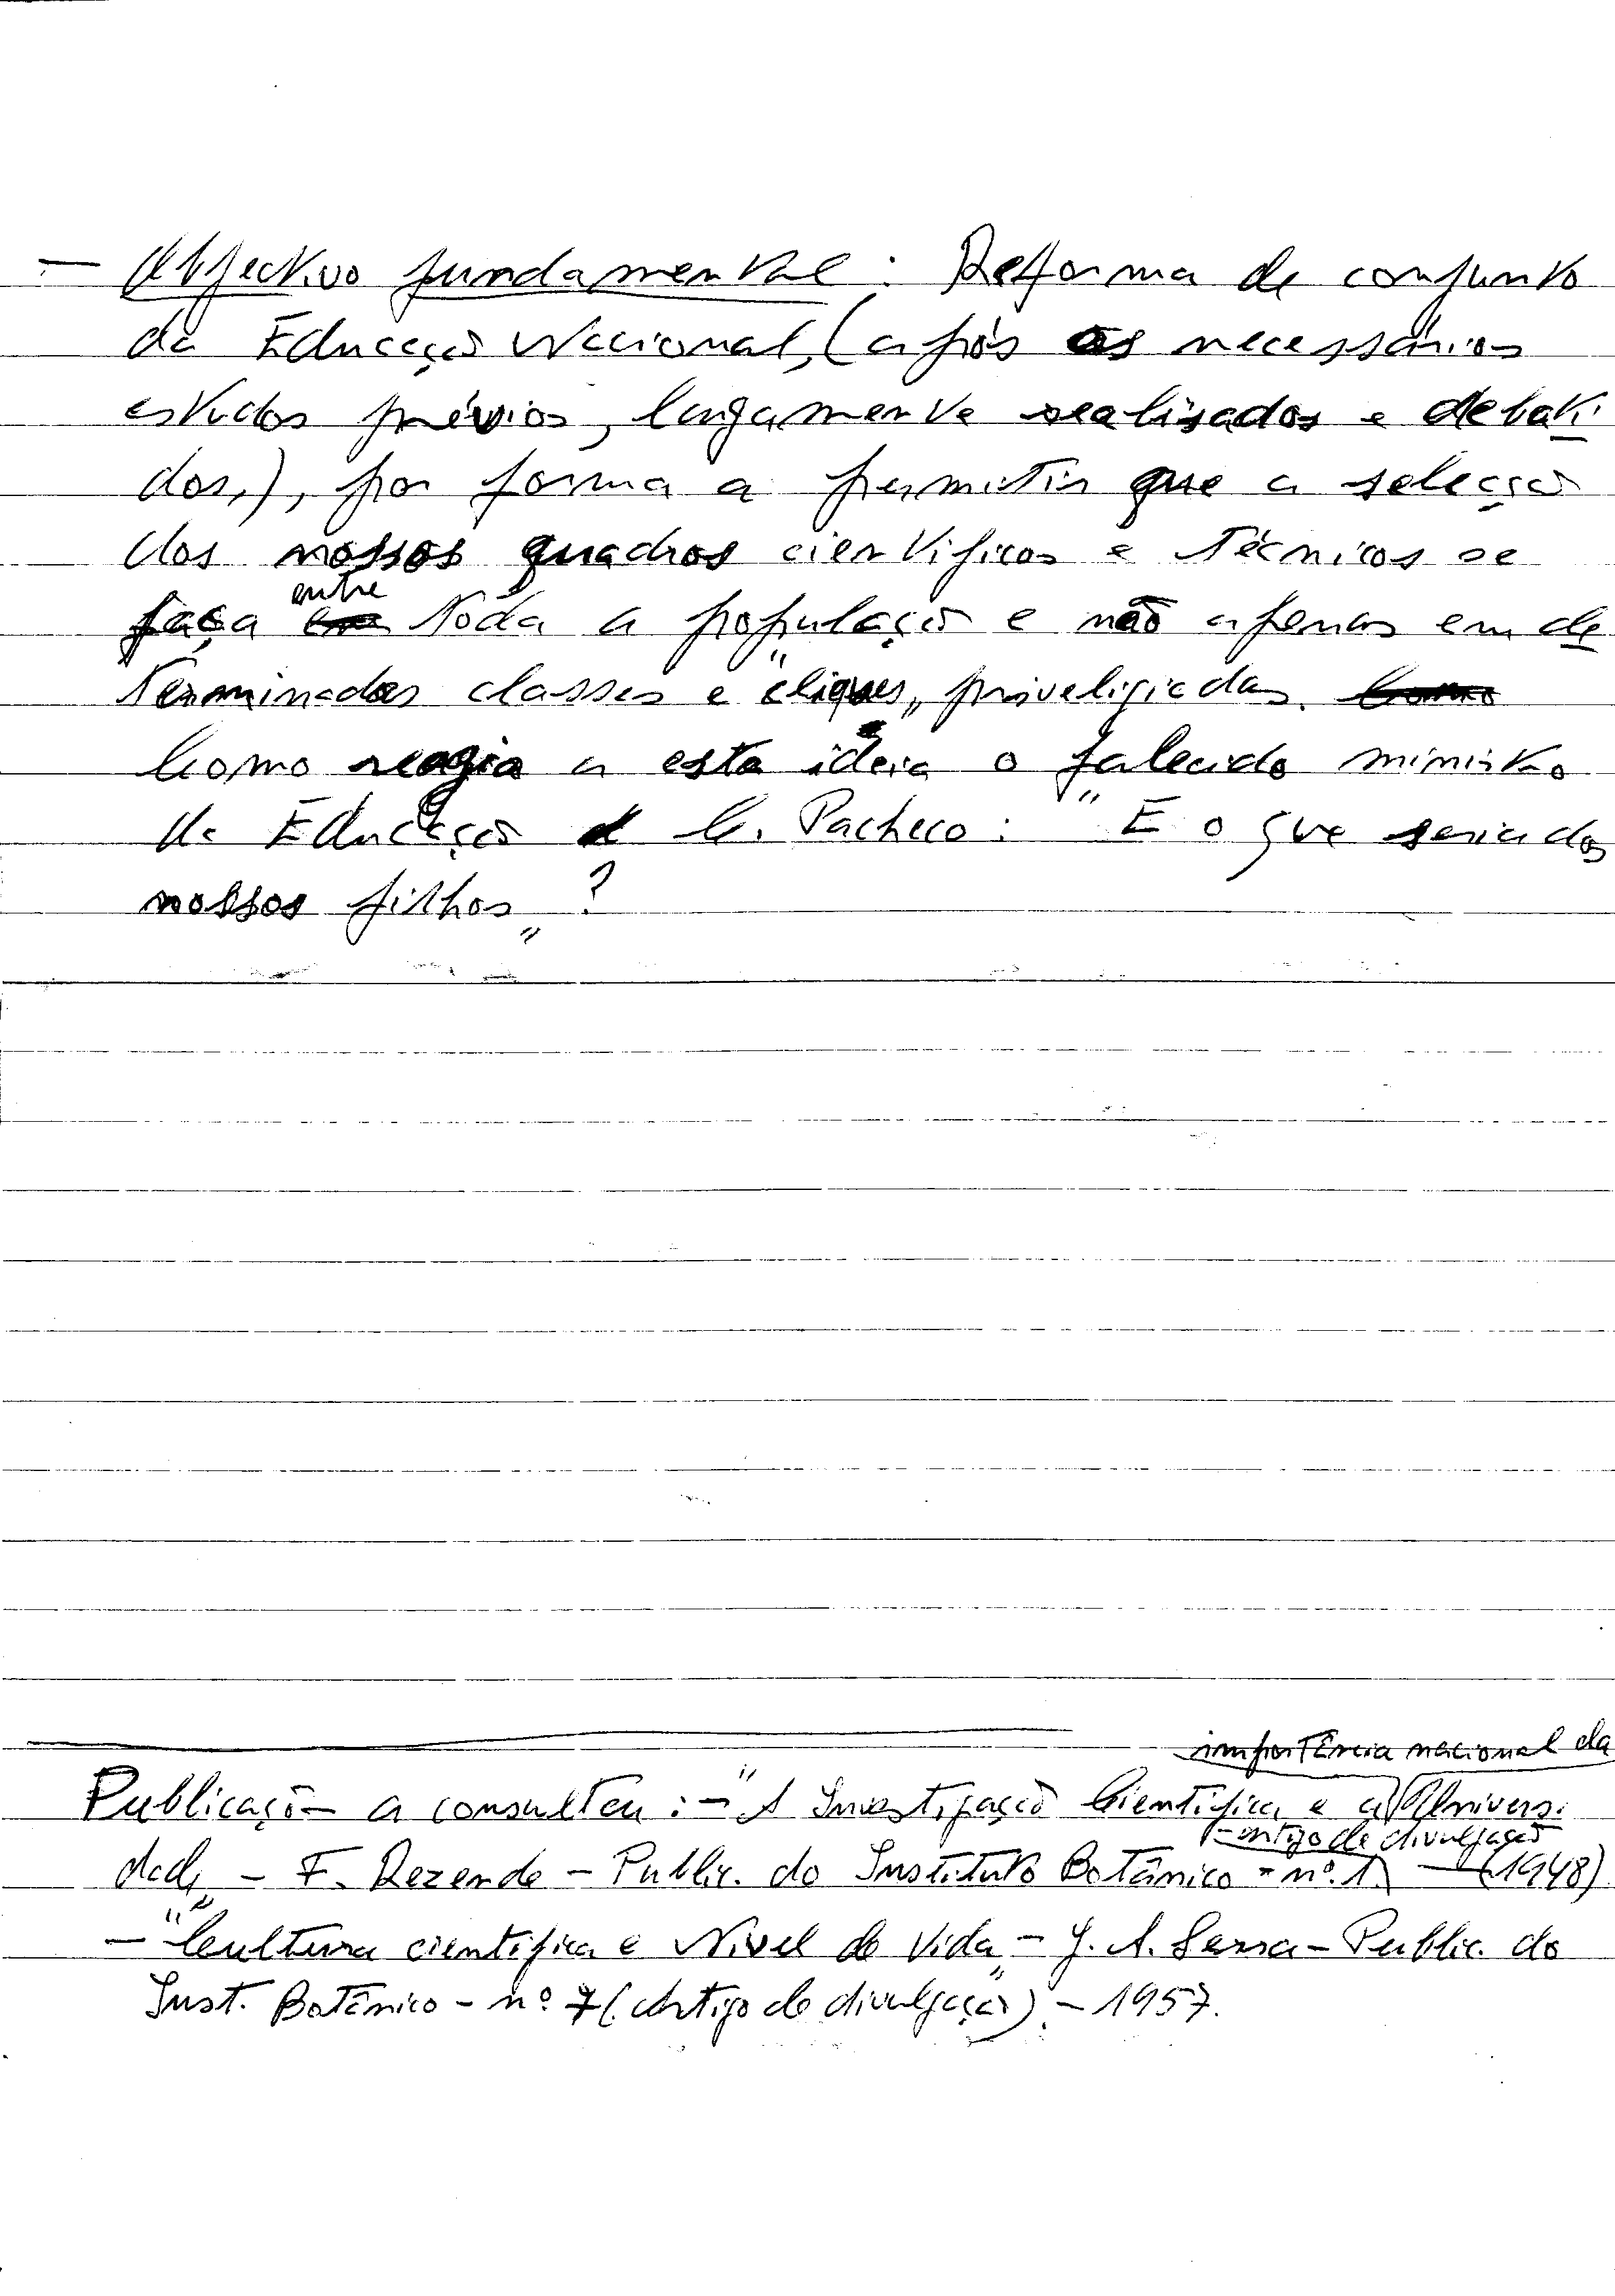 — Objectivo fundamental : Reforma de conjunto
da Educação Nacional, (após os necessários
estudos prévios, largamente realisados e debati
dos,), por forma a permitir que a selecção
dos nossos quadros cientificos e técnicos se
entre
faça toda a população e não apenas em de
terminadas classes e "cliques" priveligiadas.
Como reagia a esta ideia o falecido ministro
da Educação C. Pacheco : "E o que seria dos
nossos filhos" ?
importância nacional da
Publicação a consultar : — "A Investigação Cientifica e a Universi
— artigo de divulgação
dade" — F. Rezende — Public. do Instituto Botânico — nº. 1 — (1948)
— "Cultura cientifica e Nivel de Vida" — J. A. Serra — Public. do
Inst. Botânico — nº 7 (Artigo de divulgação) — 1957.